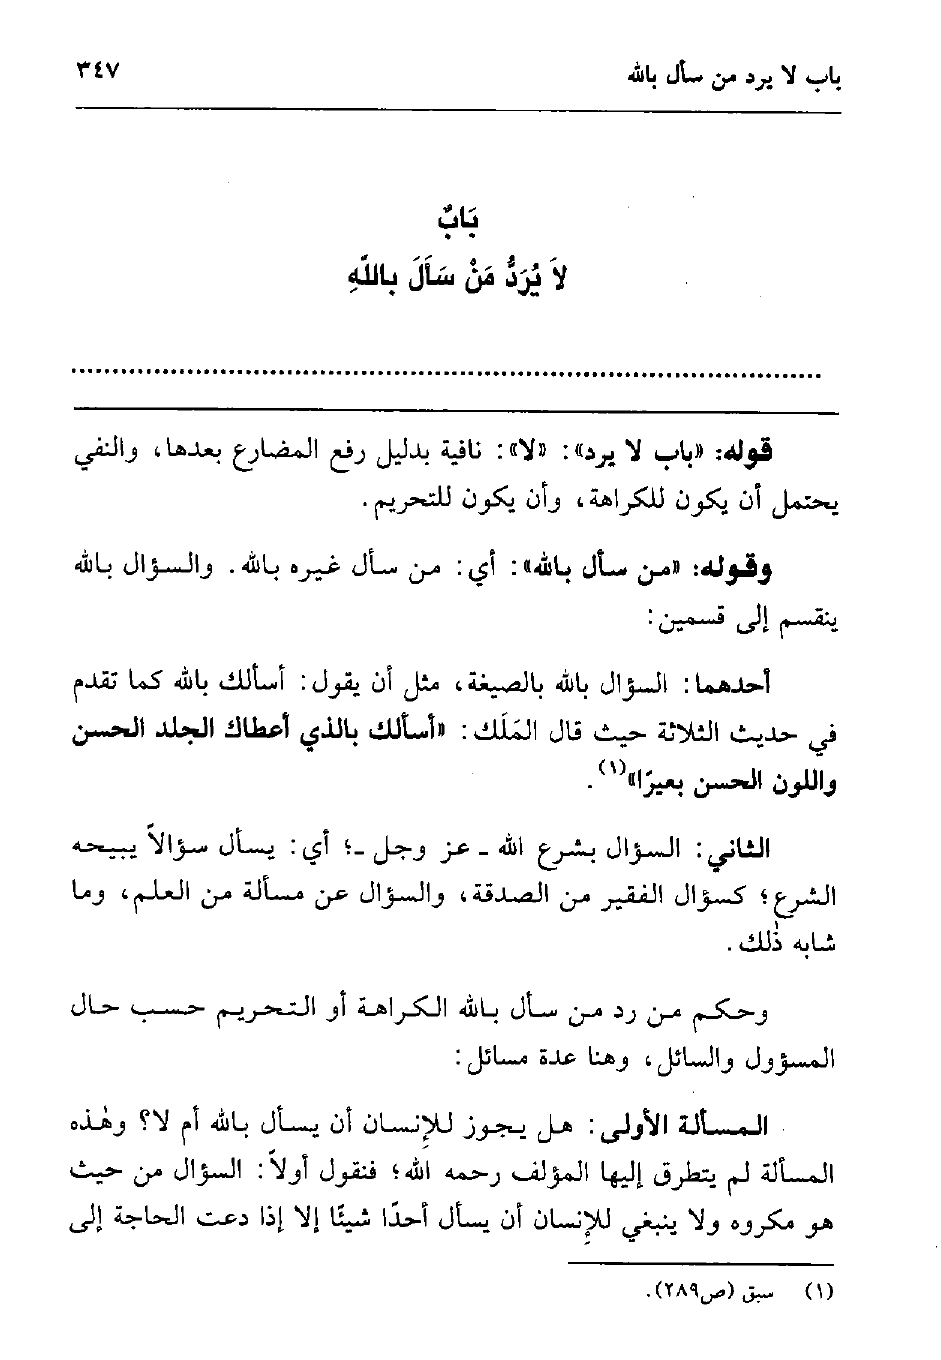 باب لا يرد من سأل بالله ٣٤٧
بَابٌ
لاَ يُرَدُّ مَنْ سَأَلَ بِاللَّهِ
قوله: «باب لا يرد»: «لا»: نافية بدليل رفع المضارع بعدها، والنفي
يحتمل أن يكون للكراهة، وأن يكون للتحريم.
وقوله: «من سأل بالله»: أي: من سأل غيره بالله. والسؤال بالله
ينقسم إلى قسمين:
أحدهما: السؤال بالله بالصيغة، مثل أن يقول: أسألك بالله كما تقدم
في حديث الثلاثة حيث قال المَلَك: «أسألك بالذي أعطاك الجلد الحسن
واللون الحسن بعيرًا»(١).
الثاني: السؤال بشرع الله ـ عز وجل ـ؛ أي: يسأل سؤالاً يبيحه
الشرع؛ كسؤال الفقير من الصدقة، والسؤال عن مسألة من العلم، وما
شابه ذٰلك.
وحكم من رد من سأل بالله الكراهة أو التحريم حسب حال
المسؤول والسائل، وهنا عدة مسائل:
المسألة الأولى: هل يجوز للإنسان أن يسأل بالله أم لا؟ وهٰذه
المسألة لم يتطرق إليها المؤلف رحمه الله؛ فنقول أولاً: السؤال من حيث
هو مكروه ولا ينبغي للإنسان أن يسأل أحدًا شيئًا إلا إذا دعت الحاجة إلى
(١) سبق (ص٢٨٩).